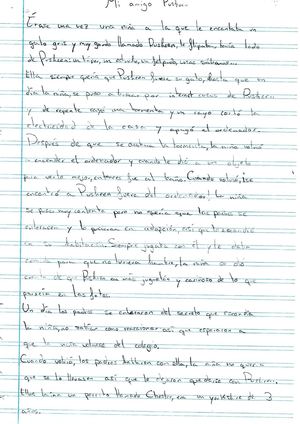 Mi amigo Pusheen
Érase una vez una niña a la que le encantaba un
gato gris y muy gordo llamado Pusheen, le flipaba, tenía todo
de Pusheen un
Ella siempre quería que Pusheen fuera su gato, hasta que un
día la niña se puso a mirar por internet cosas de Pusheen
y de repente cayó una tormenta y un rayo cortó la
electricidad de la casa y apagó el ordenador.
Después de que se acabara la tormenta, la niña volvió
a encender el ordenador y cuando le dió a un objeto
para verlo mejor, entonces fue al baño. Cuando volvió, ¡se
encontró a Pusheen fuera del ordenador! La niña
se puso muy contenta pero no quería que los padres se
enterasen y lo pusieran en adopción, así que lo escondió
en su habitación. Siempre jugaba con él y le daba
comida para que no tuviera hambre, la niña se dió
cuenta de que Pusheen era más juguetón y cariñoso de lo que
parecía en las fotos.
Un día los padres se enteraron del secreto que escondía
la niña, no sabían como reaccionar así que esperaron a
que la niña volviese del colegio.
Cuando volvió, los padres hablaron con ella, la niña no quería
que se lo llevasen así que le dejaron quedarse con Pusheen.
Ellos tenían un perrito llamado Chester, era un yorkshire de 3
años.